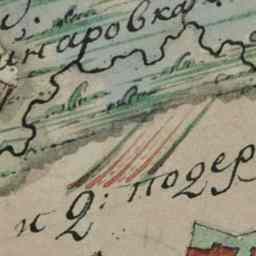 инаровка
и 2: подер